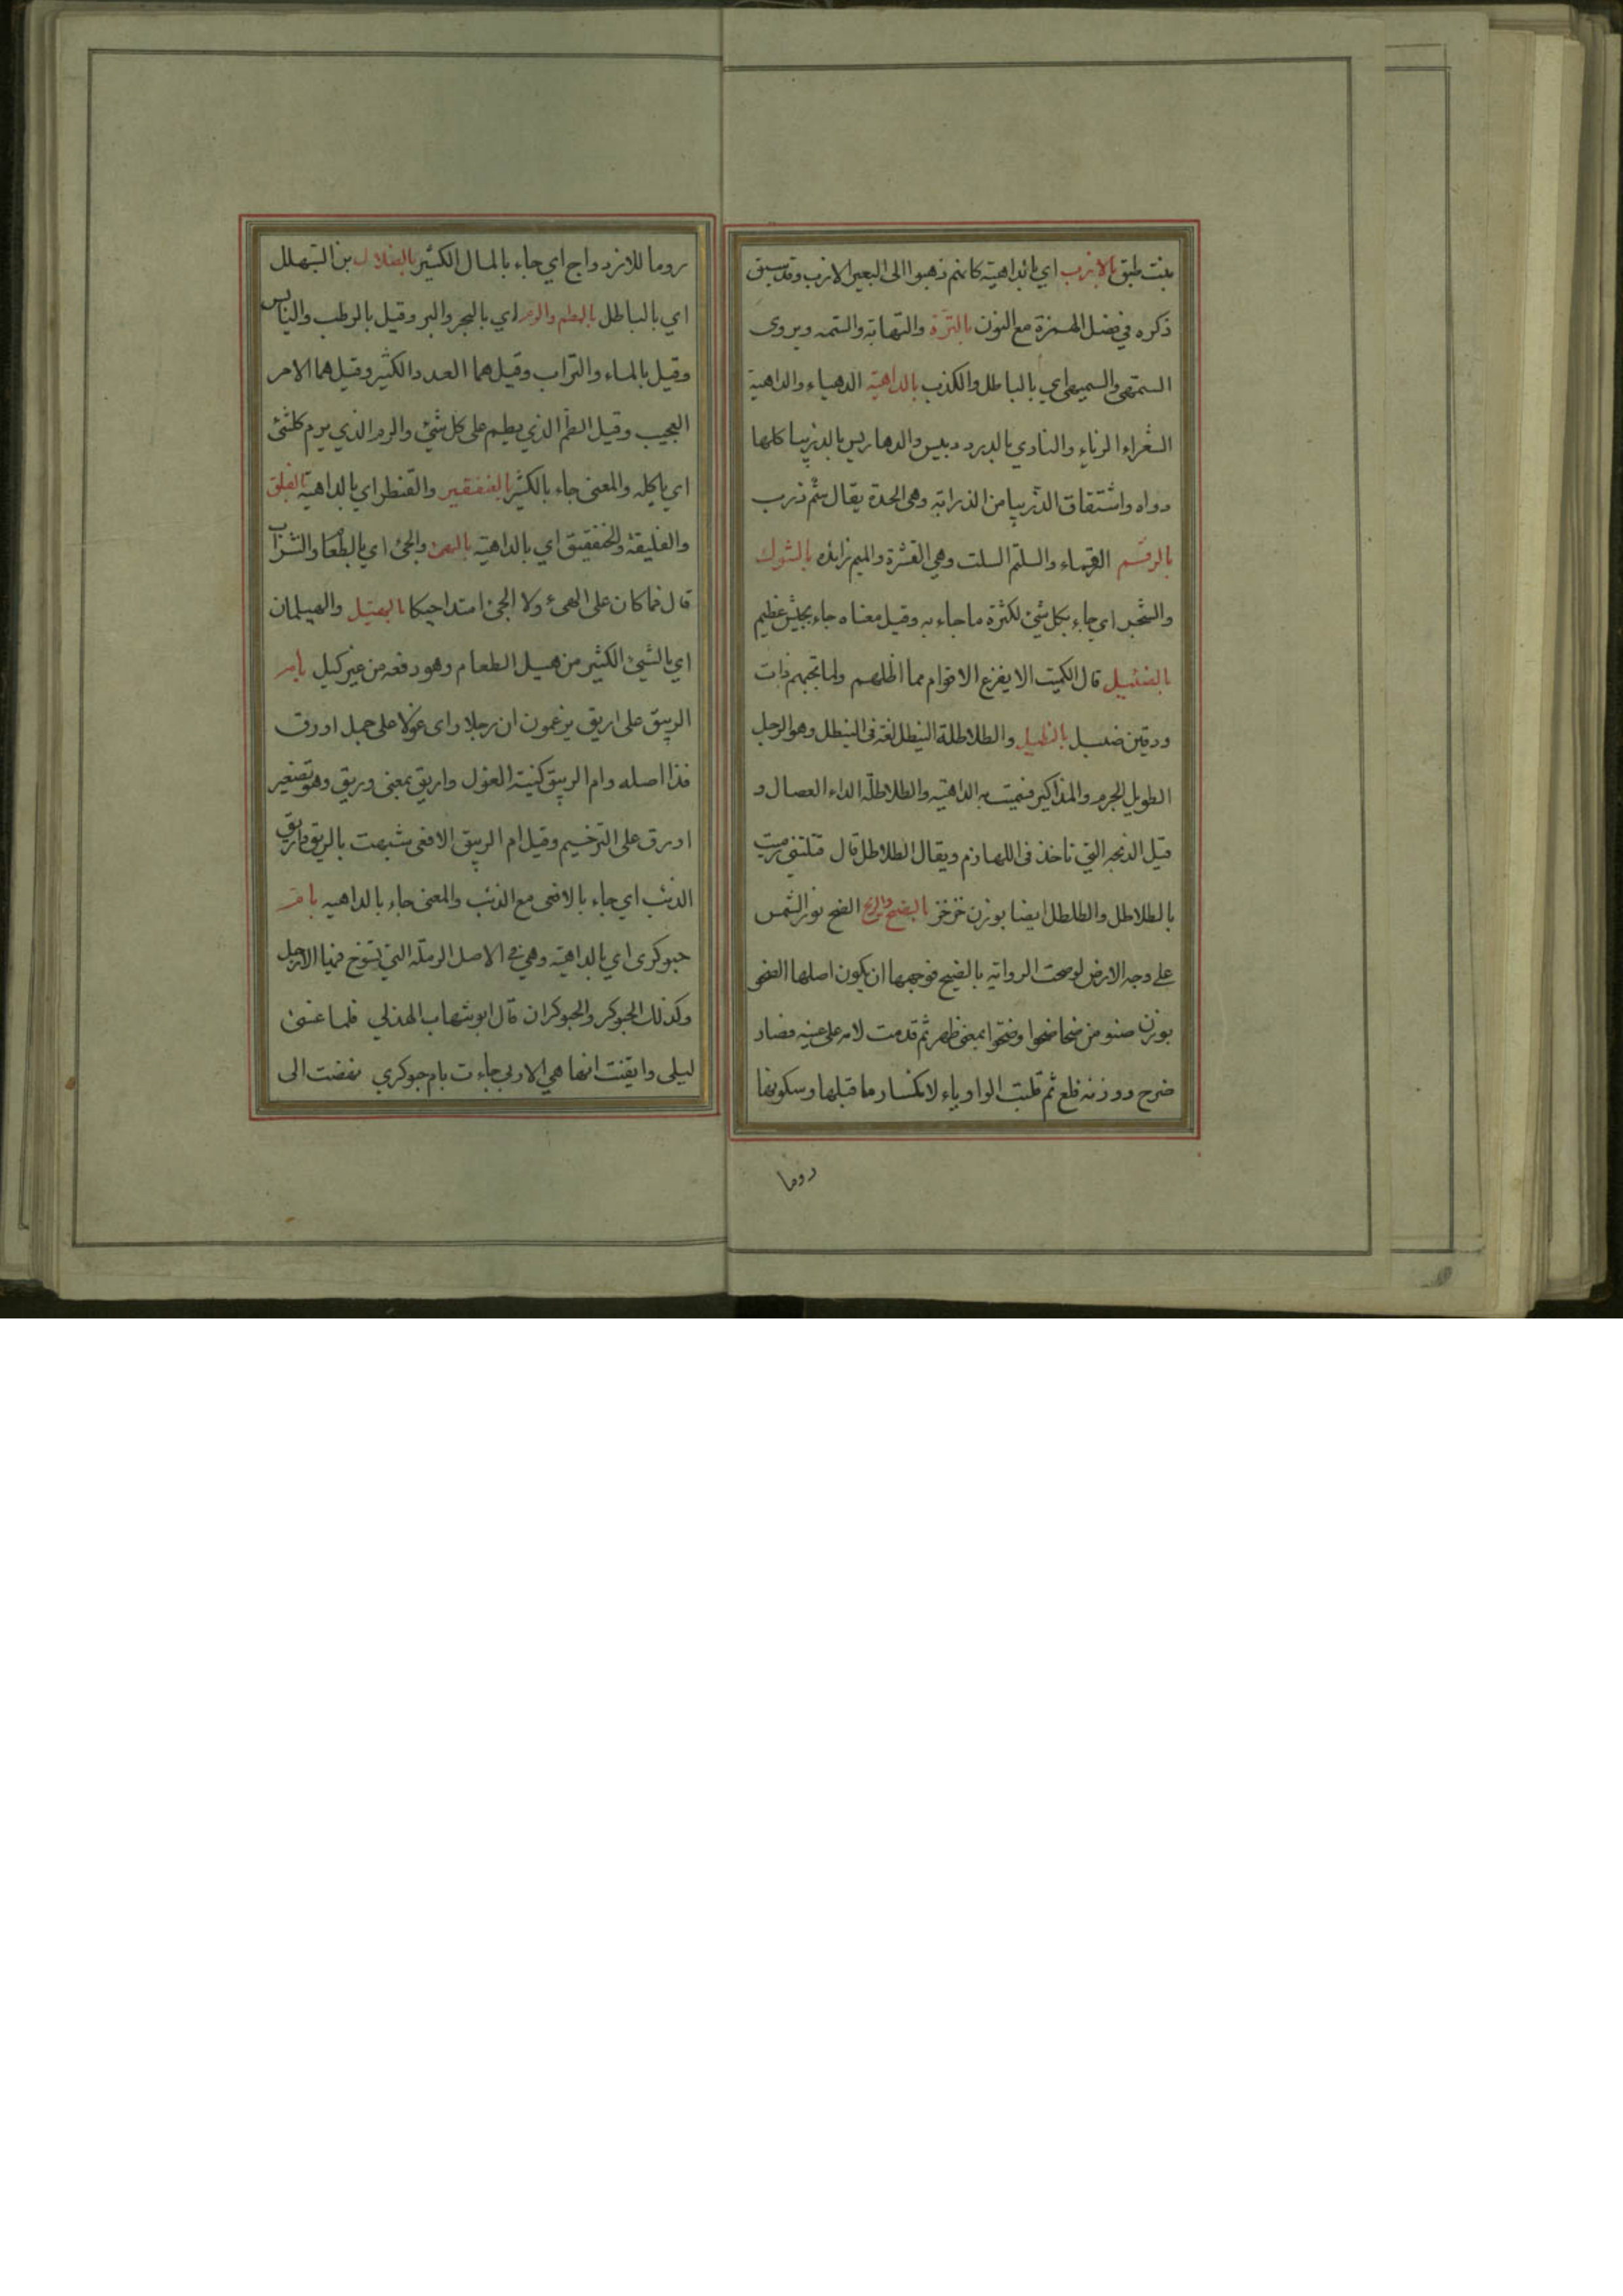 بنت طبق بالازب اي بالداهية كانهم ذهبوا الى البعير الازب وقد سبق
ذكره في فصل الهمزة مع النون بالترة والتهاته والسمه ويروى
السمهى والسميهى اي بالباطل والكذب بالداهية الدهياء والداهية
الشعراء الزباء والنادي بالدردبيس والدهاريس بالذربيا كلها
دواه واشتقاق الذربيا من الذرابة وهي الحدة يقال سم ذرب
بالرقم القرماء والسلتم السلت وهي القشرة والميم زايده بالشوك
والشجر اي جاء بكل شئ لكثرة ما جاء به وقيل معناه جاء بجيش عظيم
بالضئيل قال الكميت الا يفزع الاقوام مما اظلهم ولما تجبهم ذات
ودقين ضئبل بالنئطل والطلاطلة النيطل لغة في النئطل وهو الرجل
الطويل الجرم والمذاكير فسميت به الداهية والطلاطلة الداء العضال و
قيل الذبحه التي تاخذ في اللهازم ويقال الطلاطل قال قتلتني رميت
بالطلاطل والطلطل ايضا بوزن خزخز بالضيح والريح الضح نور الشمس
على وجه الارض لو صحت الرواية بالضيح فوجهها ان يكون اصلها الضحو
بوزن صنو من ضحا ضحوا وضحوا بمعنى ظهر ثم قدمت لامه على عينه فصار
ضوح ووزنه فلع ثم قلبت الواو ياء لانكسار ما قبلها وسكونها
روما
روما للازدواج اي جاء بالمال الكثير بالضلال بن التهلل
اي بالباطل بالطم والرم اي بالبحر والبر وقيل بالرطب واليابس
وقيل بالماء والتراب وقيل هما العدد الكثير وقيل هما الامر
العجيب وقيل الطم الذي يطم على كل شئ والرم الذي يرم كلشئ
اي ياكله والمعنى جاء بالكثير بالعنقفير والقنطر اي بالداهية بالفلق
والفليقة والخنفقيق اي بالداهية بالهئ والجئ اي بالطعام والشراب
قال فما كان على الهئ ولا الجئ امتداحيكا بالهيل والهيلمان
اي بالشئ الكثير من هيل الطعام وهو دفعه من غير كيل بام
الربيق على اريق يزعمون ان رجلا راى غولا على جمل اورق
فذا اصله وام الربيق كنية الغول واريق بمعنى وريق وهو تصغير
اورق على الترخيم وقيل ام الربيق الافعى شبهت بالربق واريق
الذئب اي جاء بالافعى مع الذئب والمعنى جاء بالداهيه بام
حبوكرى اي بالداهية وهي في الاصل الرملة التي تسوخ فيها الارجل
وكذلك الحبوكر والحبوكران قال ابو شهاب الهذلي فلما غسى
ليلى وايقنت انها هي الاربى جاءت بام حبوكري نفضت الى